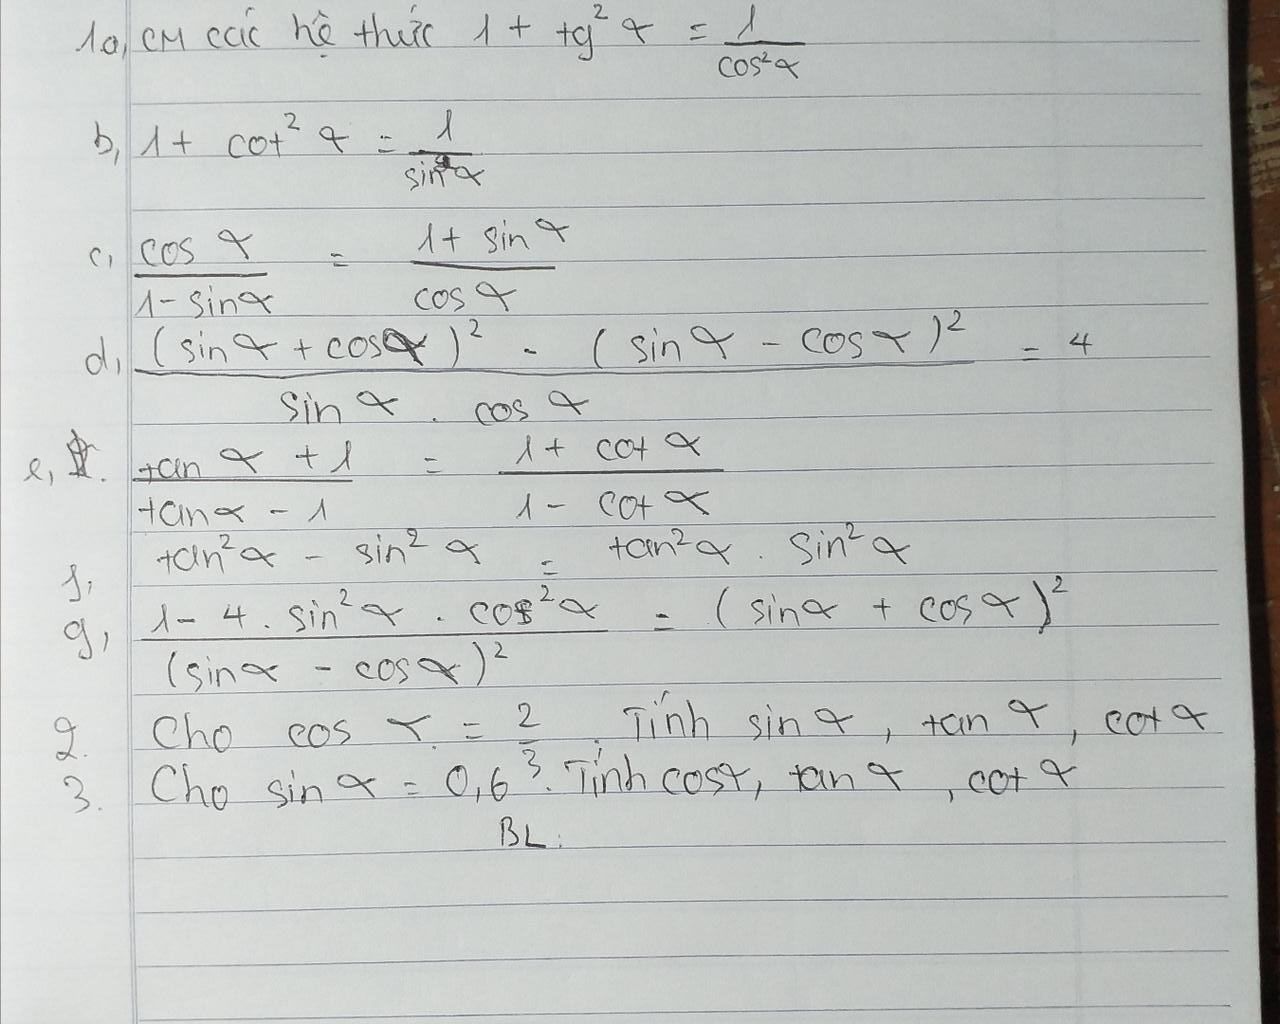 1a, CM các hệ thức 1 + tg² α = 1/cos²α
b, 1 + cot² α = 1/sin²α
c, cos α/(1 - sin α) = (1 + sin α)/cos α
d, ((sin α + cos α)² - (sin α - cos α)²)/(sin α . cos α) = 4
e, (tan α + 1)/(tan α - 1) = (1 + cot α)/(1 - cot α)
f, tan² α - sin² α = tan² α . sin² α
g, (1 - 4 . sin² α . cos² α)/(sin α - cos α)² = (sin α + cos α)²
2. Cho cos α = 2/3. Tính sin α, tan α, cot α
3. Cho sin α = 0,6. Tính cos α, tan α, cot α
BL: